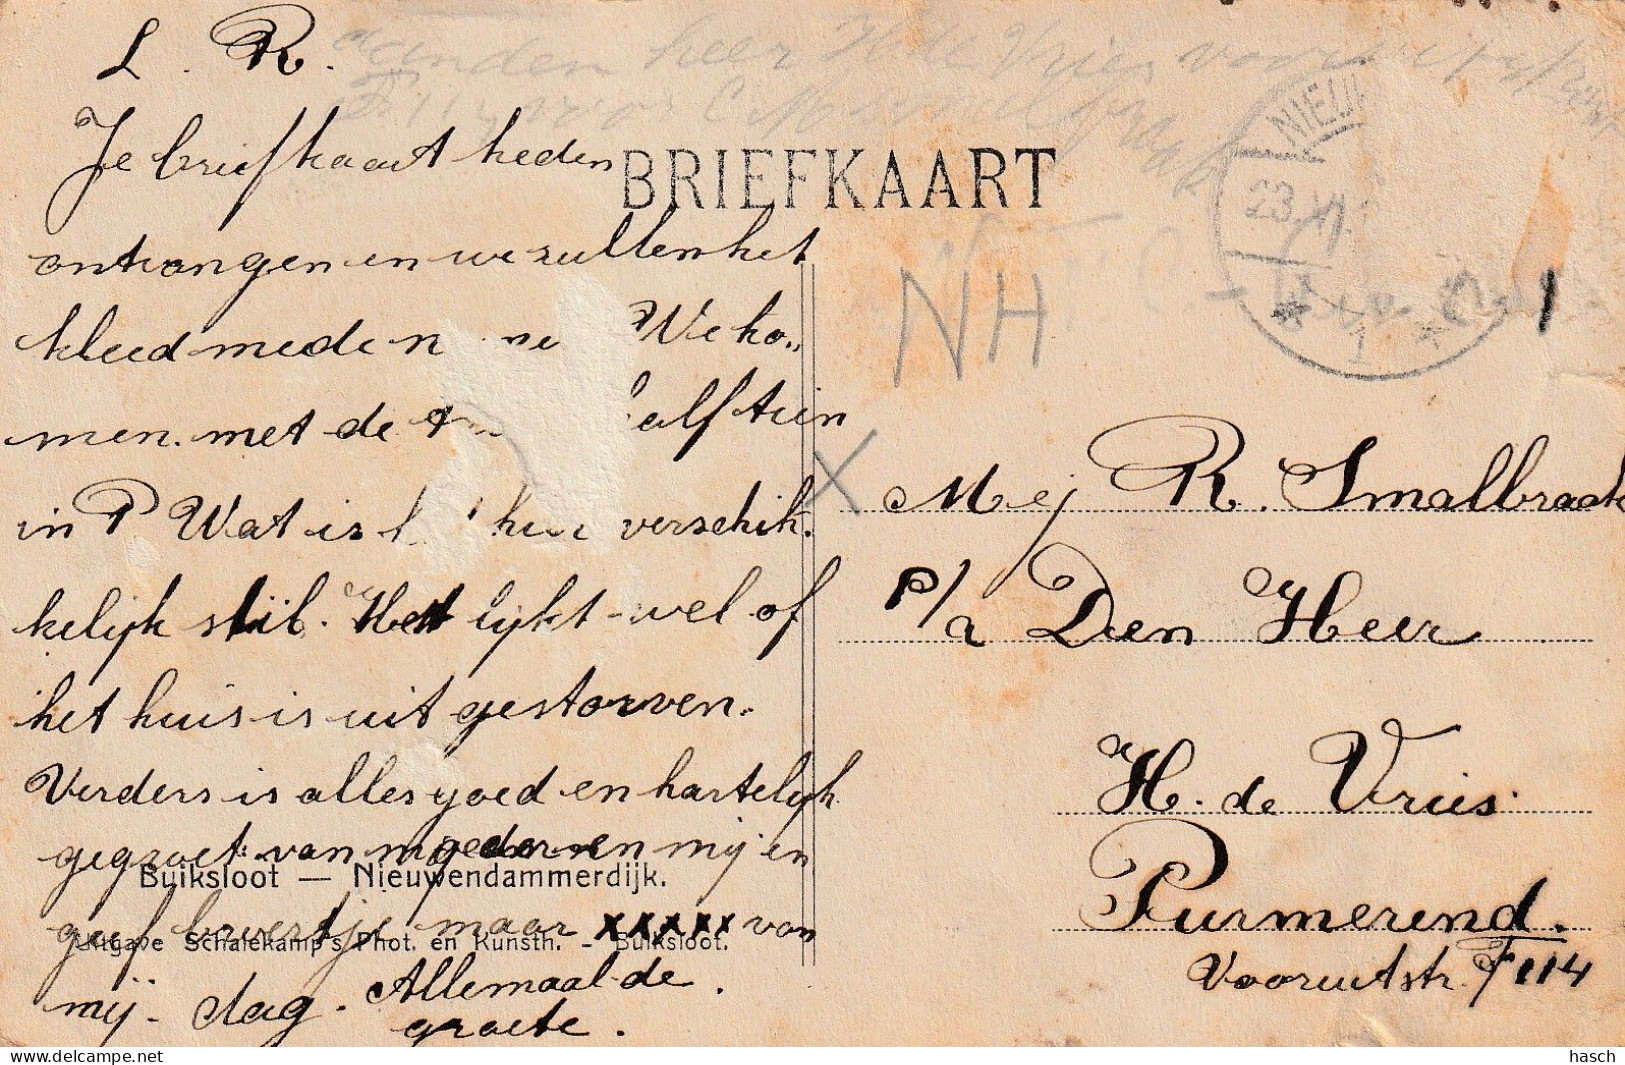 L. R.
Je briefkaart heden
ontvangen en we zullen het
kleed mede n We ko„
men. met de alf tien
in P Wat is verschik.
kelijk stil. Het lijkt wel of
het huis is uit gestorven.
Verders is alles goed en hartelijk
gegroet van moeder en mij en
geef broertje maar xxxxx van
mij. dag. Allemaal de
groete.
Buiksloot — Nieuwendammerdijk.
Uitgave Schalekamp's Phot. en Kunsth. - Buiksloot.
aan den heer H de Vries
BRIEFKAART
NIEUW
23.XI
1
NH
X
Mej R. Smalbraak
p/a Den Heer
H. de Vries.
Purmerend.
Vooruitstr. F 114
hasch